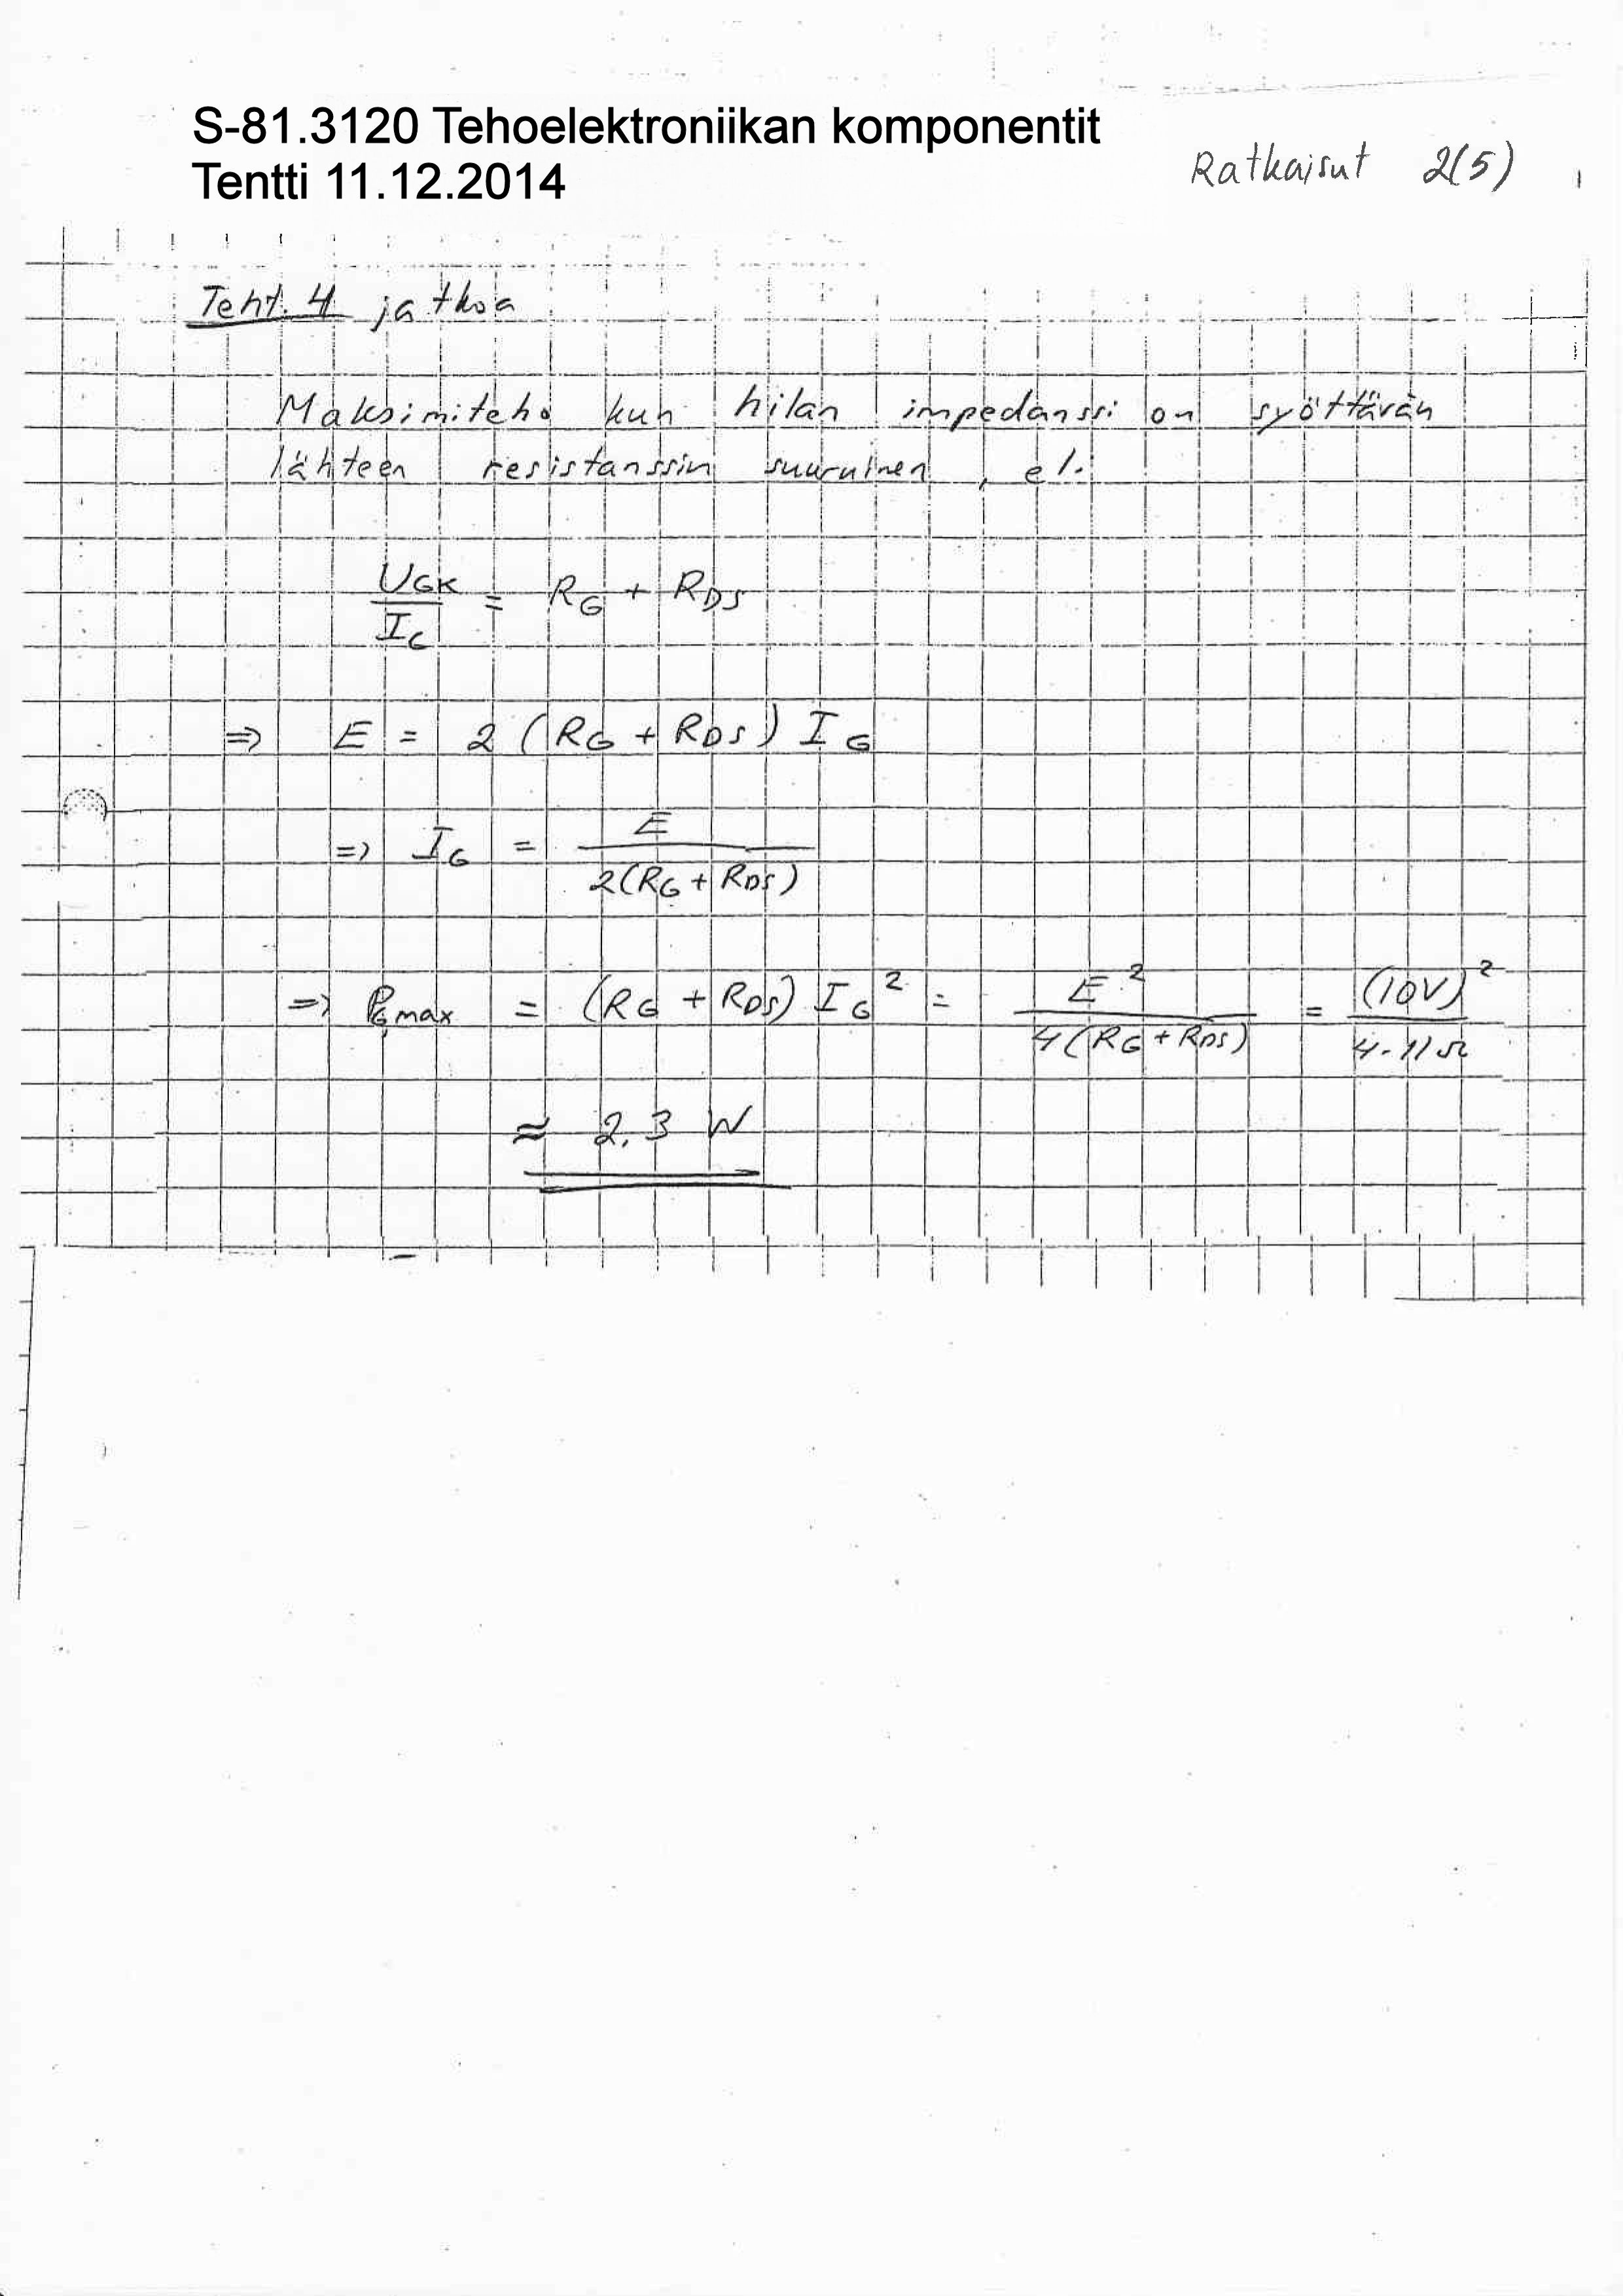 S-81.3120 Tehoelektroniikan komponentit
Tentti 11.12.2014
Ratkaisut 2(5)
Teht. 4 jatkoa
Maksimiteho kun hilan impedanssi on syöttävän
lähteen resistanssin suuruinen, el.
U_GK / I_G = R_G + R_DS
=> E = 2 (R_G + R_DS) I_G
=> I_G = E / 2(R_G + R_DS)
=> P_Gmax = (R_G + R_DS) I_G² = E² / 4(R_G + R_DS) = (10V)² / 4·11Ω
≈ 2,3 W